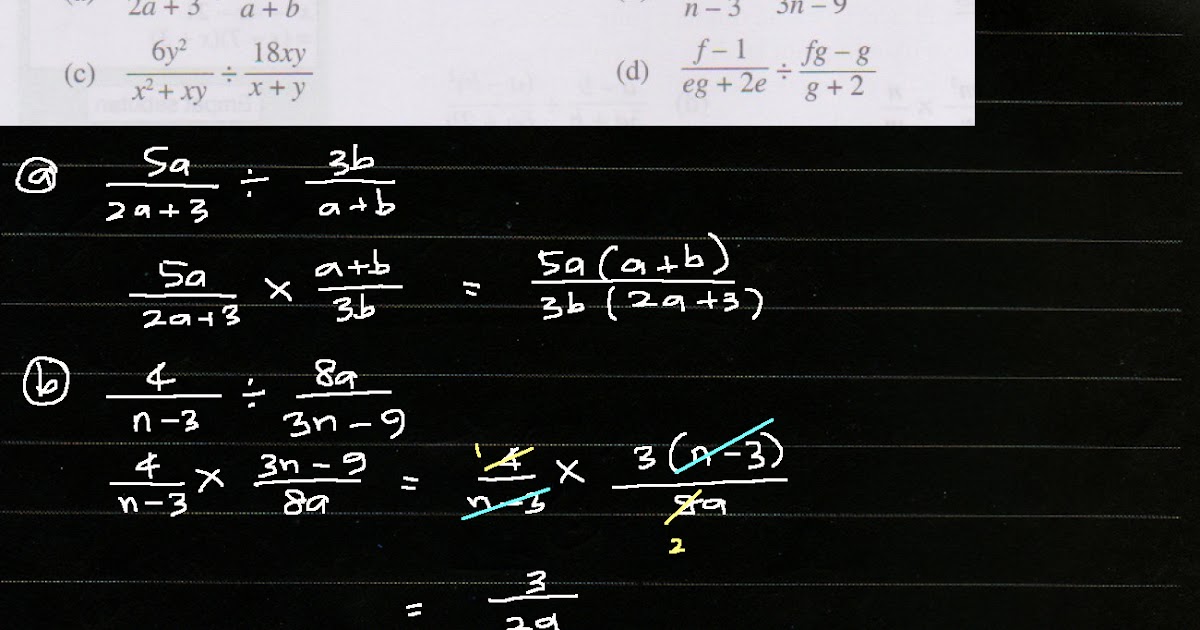 2a + 3 a + b
n − 3 3n − 9
(c) 6y²/(x² + xy) ÷ 18xy/(x + y)
(d) (f − 1)/(eg + 2e) ÷ (fg − g)/(g + 2)
(a) 5a/(2a+3) ÷ 3b/(a+b)
5a/(2a+3) × (a+b)/3b = 5a(a+b)/3b(2a+3)
(b) 4/(n−3) ÷ 8a/(3n−9)
4/(n−3) × (3n−9)/8a = 4/(n−3) × 3(n−3)/8a
1
2
= 3/2a